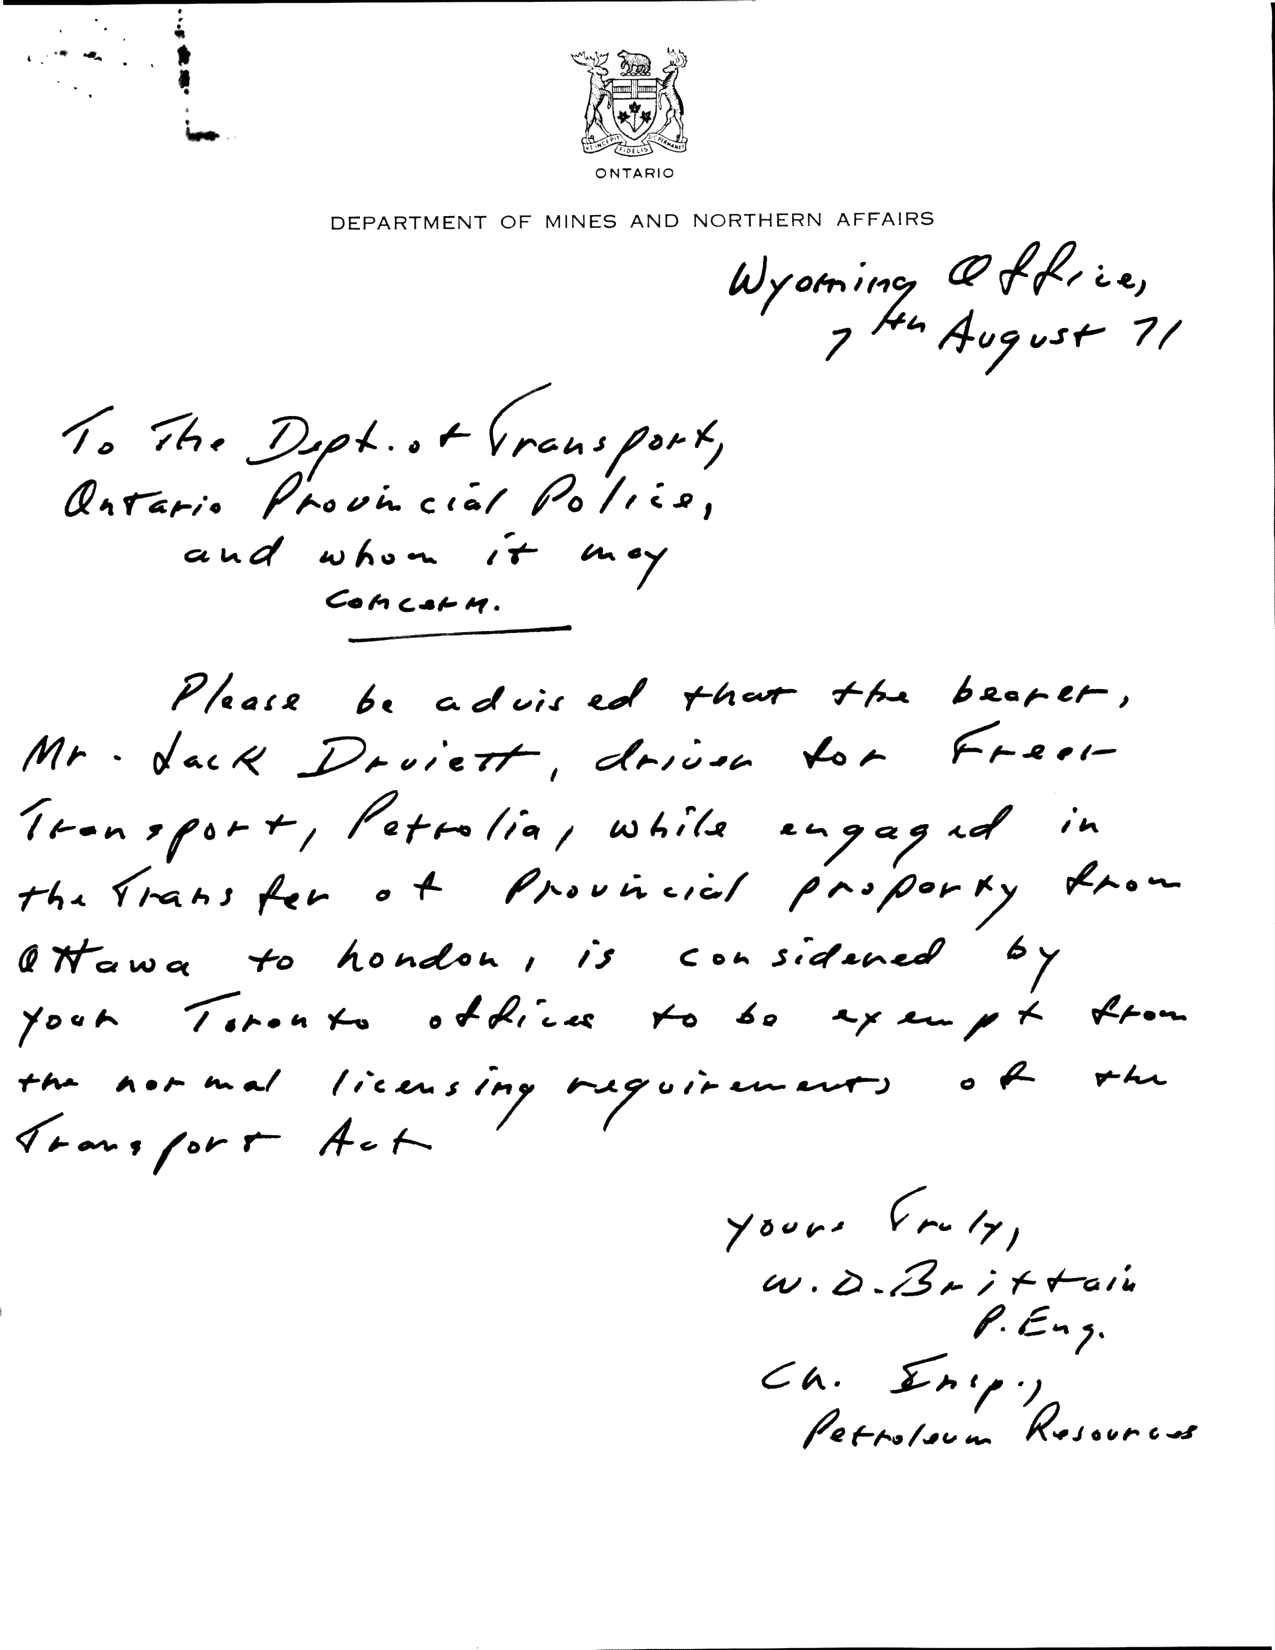 UT INCEPIT FIDELIS SIC PERMANET
ONTARIO
DEPARTMENT OF MINES AND NORTHERN AFFAIRS
Wyoming Office,
7th August 71
To The Dept. of Transport,
Ontario Provincial Police,
and whom it may
concern.
Please be advised that the bearer,
Mr. Jack Druiett, driver for
Transport, Petrolia, while engaged in
the Transfer of Provincial property from
Ottawa to London, is considered by
your Toronto offices to be exempt from
the normal licensing requirements of the
Transport Act
Yours Truly,
W. D. Brittain
P. Eng.
Ch. Insp.,
Petroleum Resources